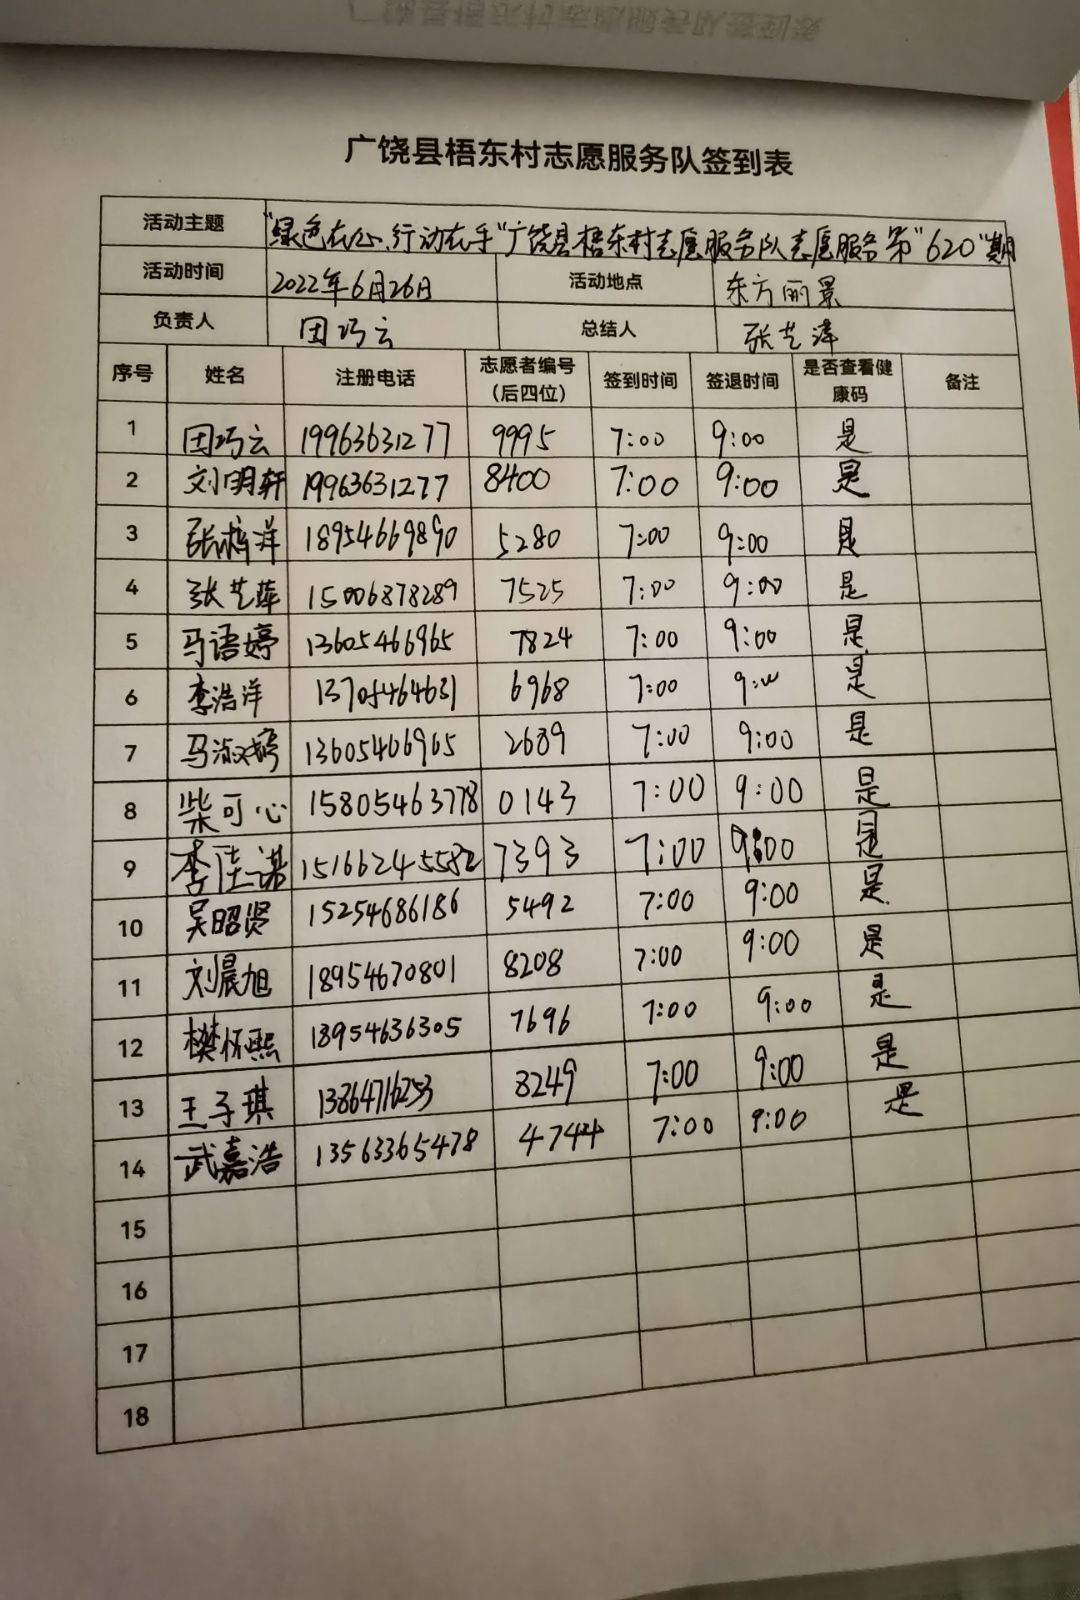 广饶县梧东村志愿服务队签到表
活动主题 "绿色在心,行动在手"广饶县梧东村志愿服务队志愿服务第"620"期
活动时间 2022年6月26日 活动地点 东方丽景
负责人 团巧云 总结人 张艺萍
序号 姓名 注册电话 志愿者编号(后四位) 签到时间 签退时间 是否查看健康码 备注
1 团巧云 19963631277 9995 7:00 9:00 是
2 刘明轩 19963631277 8400 7:00 9:00 是
3 张梓洋 18954669890 5280 7:00 9:00 是
4 张艺萍 15006378289 7525 7:00 9:00 是
5 马语婷 13605466965 7824 7:00 9:00 是
6 李浩洋 13705464631 6968 7:00 9:00 是
7 马淑婷 13605466965 2689 7:00 9:00 是
8 柴可心 15805463778 0143 7:00 9:00 是
9 李陆诺 15166245582 7393 7:00 9:00 是
10 吴昭贤 15254686186 5492 7:00 9:00 是
11 刘晨旭 18954670801 8208 7:00 9:00 是
12 樊怀熙 18954636305 7696 7:00 9:00 是
13 王子琪 13864716253 8249 7:00 9:00 是
14 武嘉浩 13563365478 4744 7:00 9:00 是
15
16
17
18